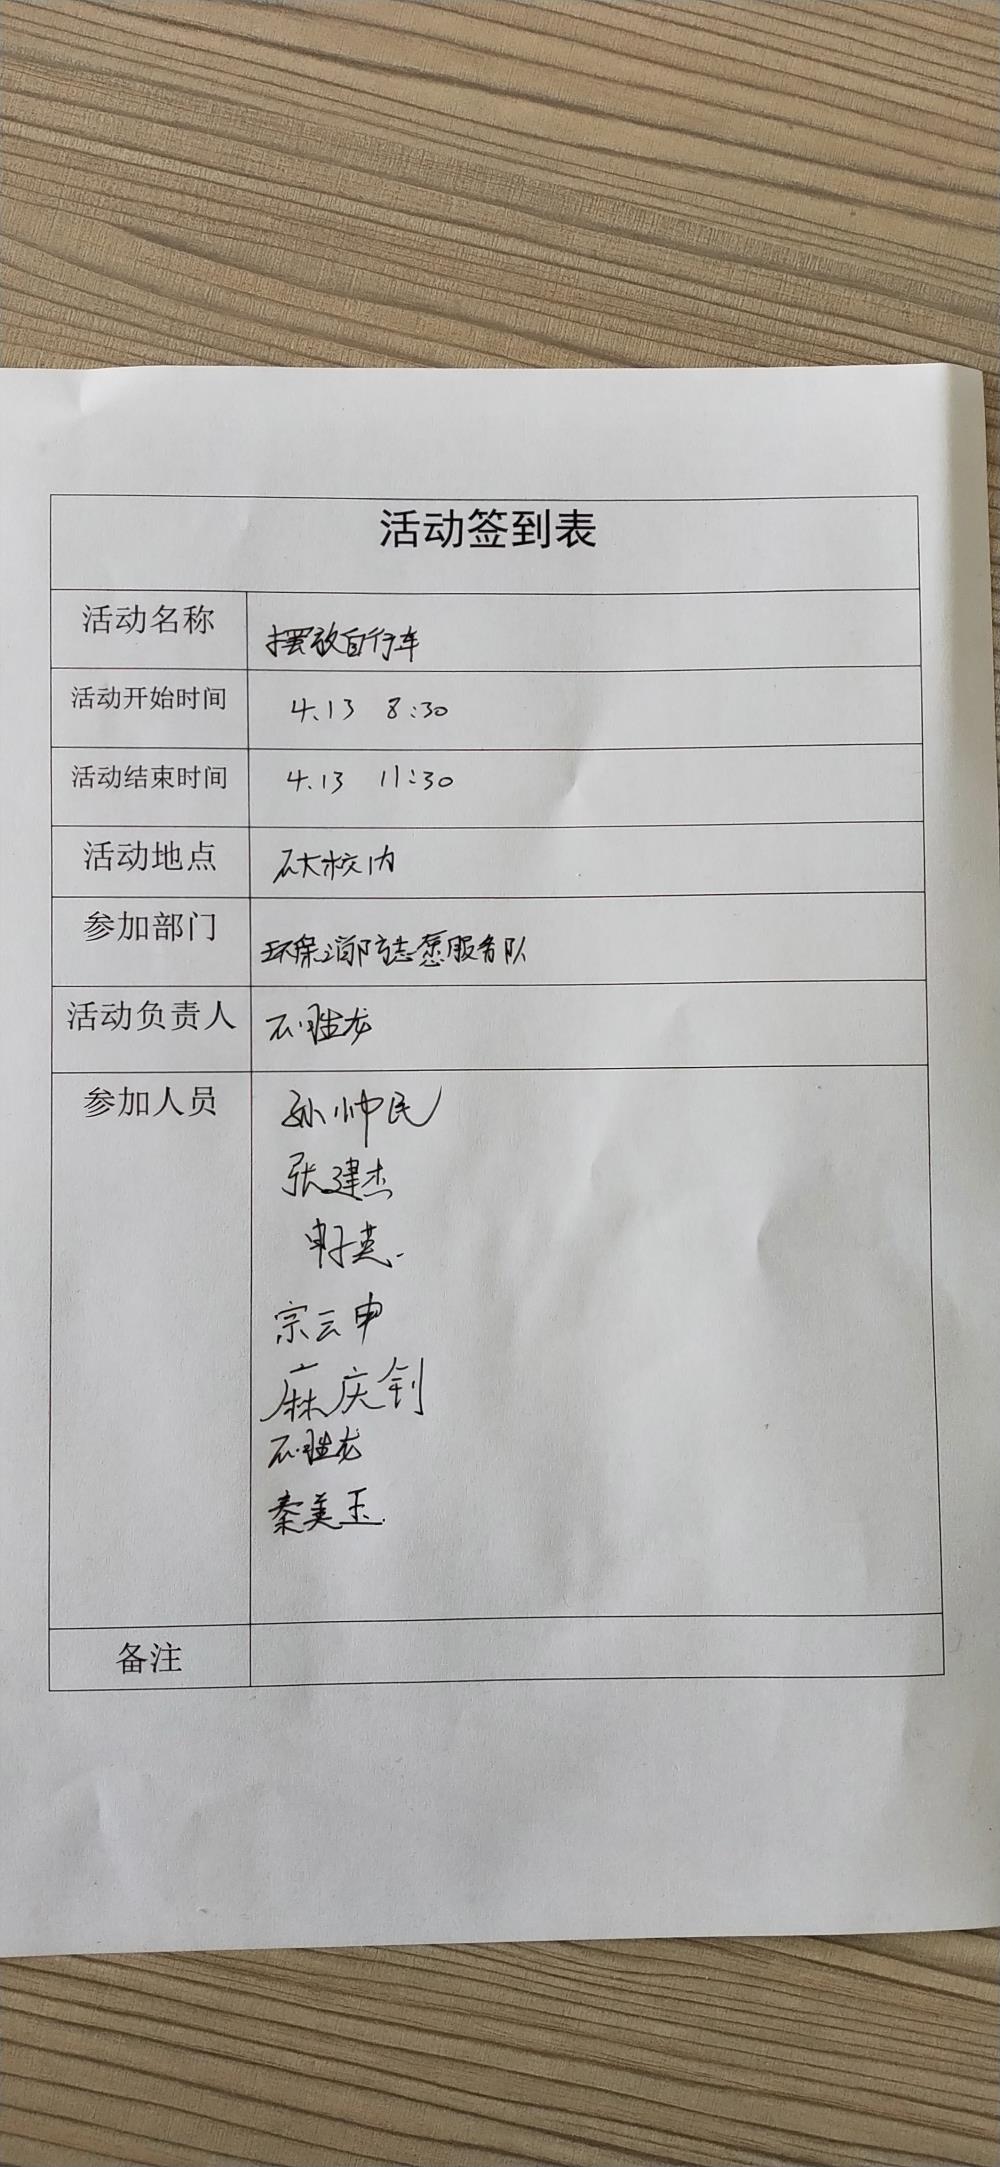 活动签到表
活动名称 摆放自行车
活动开始时间 4.13 8:30
活动结束时间 4.13 11:30
活动地点 石大校内
参加部门 环保消防志愿服务队
活动负责人 石胜龙
参加人员 孙帅民
张建杰
申子英
宗云申
麻庆钊
石胜龙
秦美玉
备注